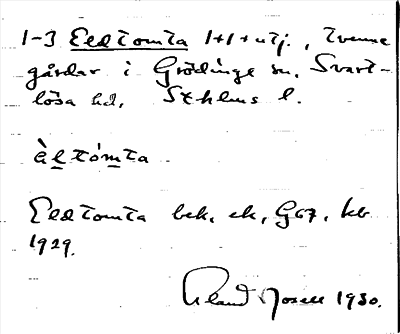 1-3 Eldtomta 1+1+utj., tvenne
gårdar i Grödinge sn, Svart-
lösa hd, Sthlms l.
àltómta
Eldtomta bek. ek, G67, kb
1929.
Roland Mosell 1930.